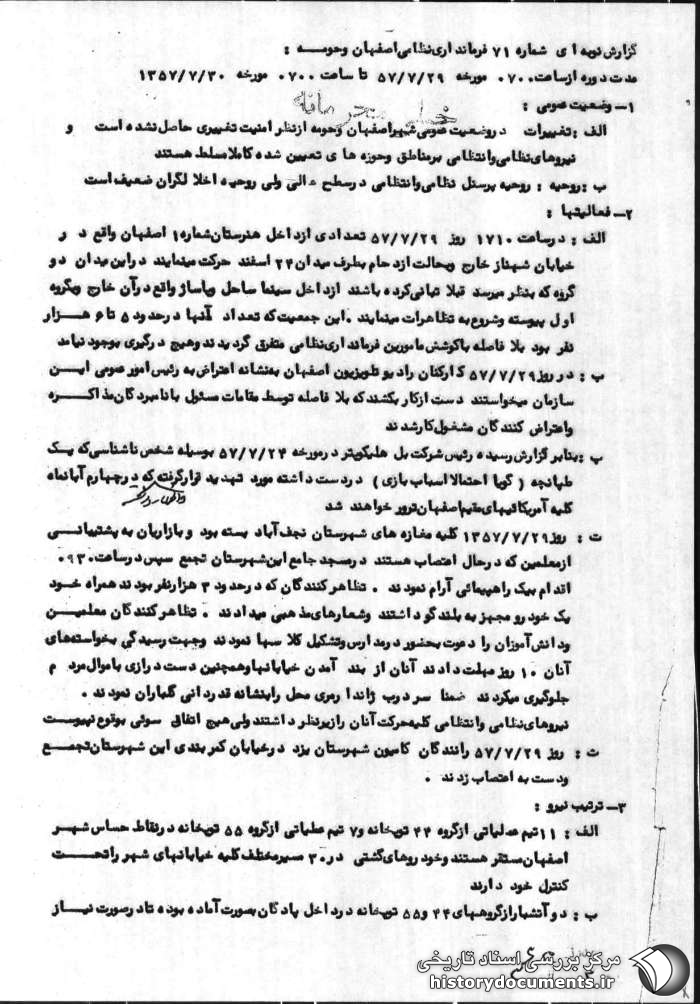 گزارش نوبه ای شماره ۷۱ فرمانداری نظامی اصفهان وحومه :
مدت دوره ازساعت ۰۷۰۰ مورخه ۵۷/۷/۲۹ تا ساعت ۰۷۰۰ مورخه ۱۳۵۷/۷/۳۰
خیلی محرمانه
۱- وضعیت عمومی :
الف : تغییرات دروضعیت عمومی شهراصفهان وحومه ازنظر امنیت تغییری حاصل نشده است و
نیروهای نظامی وانتظامی برمناطق وحوزه های تعیین شده کاملا مسلط هستند
ب : روحیه : روحیه پرسنل نظامی وانتظامی درسطح عالی ولی روحیه اخلا لگران ضعیف است
۲- فعالیتها :
الف : درساعت ۱۷۱۰ روز ۵۷/۷/۲۹ تعدادی ازداخل هنرستان شماره ۱ اصفهان واقع در
خیابان شهناز خارج وبحالت ازدحام بطرف میدان ۲۴ اسفند حرکت مینمایند دراین میدان دو
گروه که بنظر میرسد قبلا تبانی کرده باشند ازداخل سینما ساحل وپاساژ واقع درآن خارج وبگروه
اول پیوسته وشروع به تظاهرات مینمایند .این جمعیت که تعداد آنها درحدود ۵ تا ۶ هزار
نفر بود بلا فاصله باکوشش مامورین فرمانداری نظامی متفرق گردیدند وهیچ درگیری بوجود نیامد
ب : در روز ۵۷/۷/۲۹ کارکنان رادیو تلویزیون اصفهان به نشانه اعتراض به رئیس امور عمومی این
سازمان میخواستند دست ازکار بکشند که بلا فاصله توسط مقامات مسئول بانامبردگان مذاکره
واعتراض کنندگان مشغول کارشدند
پ : بنابر گزارش رسیده رئیس شرکت بل هلیکوپتر درمورخه ۵۷/۷/۲۴ بوسیله شخص ناشناسی که یک
طپانچه ( گویا احتمالا اسباب بازی ) دردست داشته مورد تهدید قرارگرفته که درچهارم آبانماه
کلیه آمریکائیهای مقیم اصفهان ترور خواهند شد
ت : روز ۱۳۵۷/۷/۲۹ کلیه مغازه های شهرستان نجف آباد بسته بود وبازاریان به پشتیبانی
ازمعلمین که درحال اعتصاب هستند درمسجد جامع این شهرستان تجمع سپس درساعت ۰۹۳۰
اقدام بیک راهپیمائی آرام نمودند . تظاهرکنندگان که درحدود ۳ هزارنفر بودند همراه خود
یک خودرو مجهز به بلندگو داشتند وشعارهای مذهبی میدادند . تظاهرکنندگان معلمین
ودانش آموزان را دعوت بحضور درمدارس وتشکیل کلا سها نمودند وجهت رسیدگی بخواسته های
آنان ۱۰ روز مهلت دادند آنان از بند آمدن خیابانها وهمچنین دست درازی باموال مردم
جلوگیری میکردند ضمنا سردرب ژاندارمری محل رابنشانه قدردانی گلباران نمودند .
نیروهای نظامی وانتظامی کلیه حرکت آنان رازیرنظر داشتند ولی هیچ اتفاق سوئی بوقوع نپیوست
ث : روز ۵۷/۷/۲۹ رانندگان کامیون شهرستان یزد درخیابان کمربندی این شهرستان تجمع
ودست به اعتصاب زدند .
۳- ترتیب نیرو :
الف : ۱۱ تیم عملیاتی ازگروه ۴۴ توپخانه و۷ تیم عملیاتی ازگروه ۵۵ توپخانه درنقاط حساس شهر
اصفهان مستقر هستند وخودروهای گشتی در۳۰ مسیرمختلف کلیه خیابانهای شهر راتحت
کنترل خود دارند
ب : دوآتشبارازگروههای ۴۴ و۵۵ توپخانه درداخل پادگان بصورت آماده بوده تادرصورت نیاز
مرکز بررسی اسناد تاریخی
historydocuments.ir